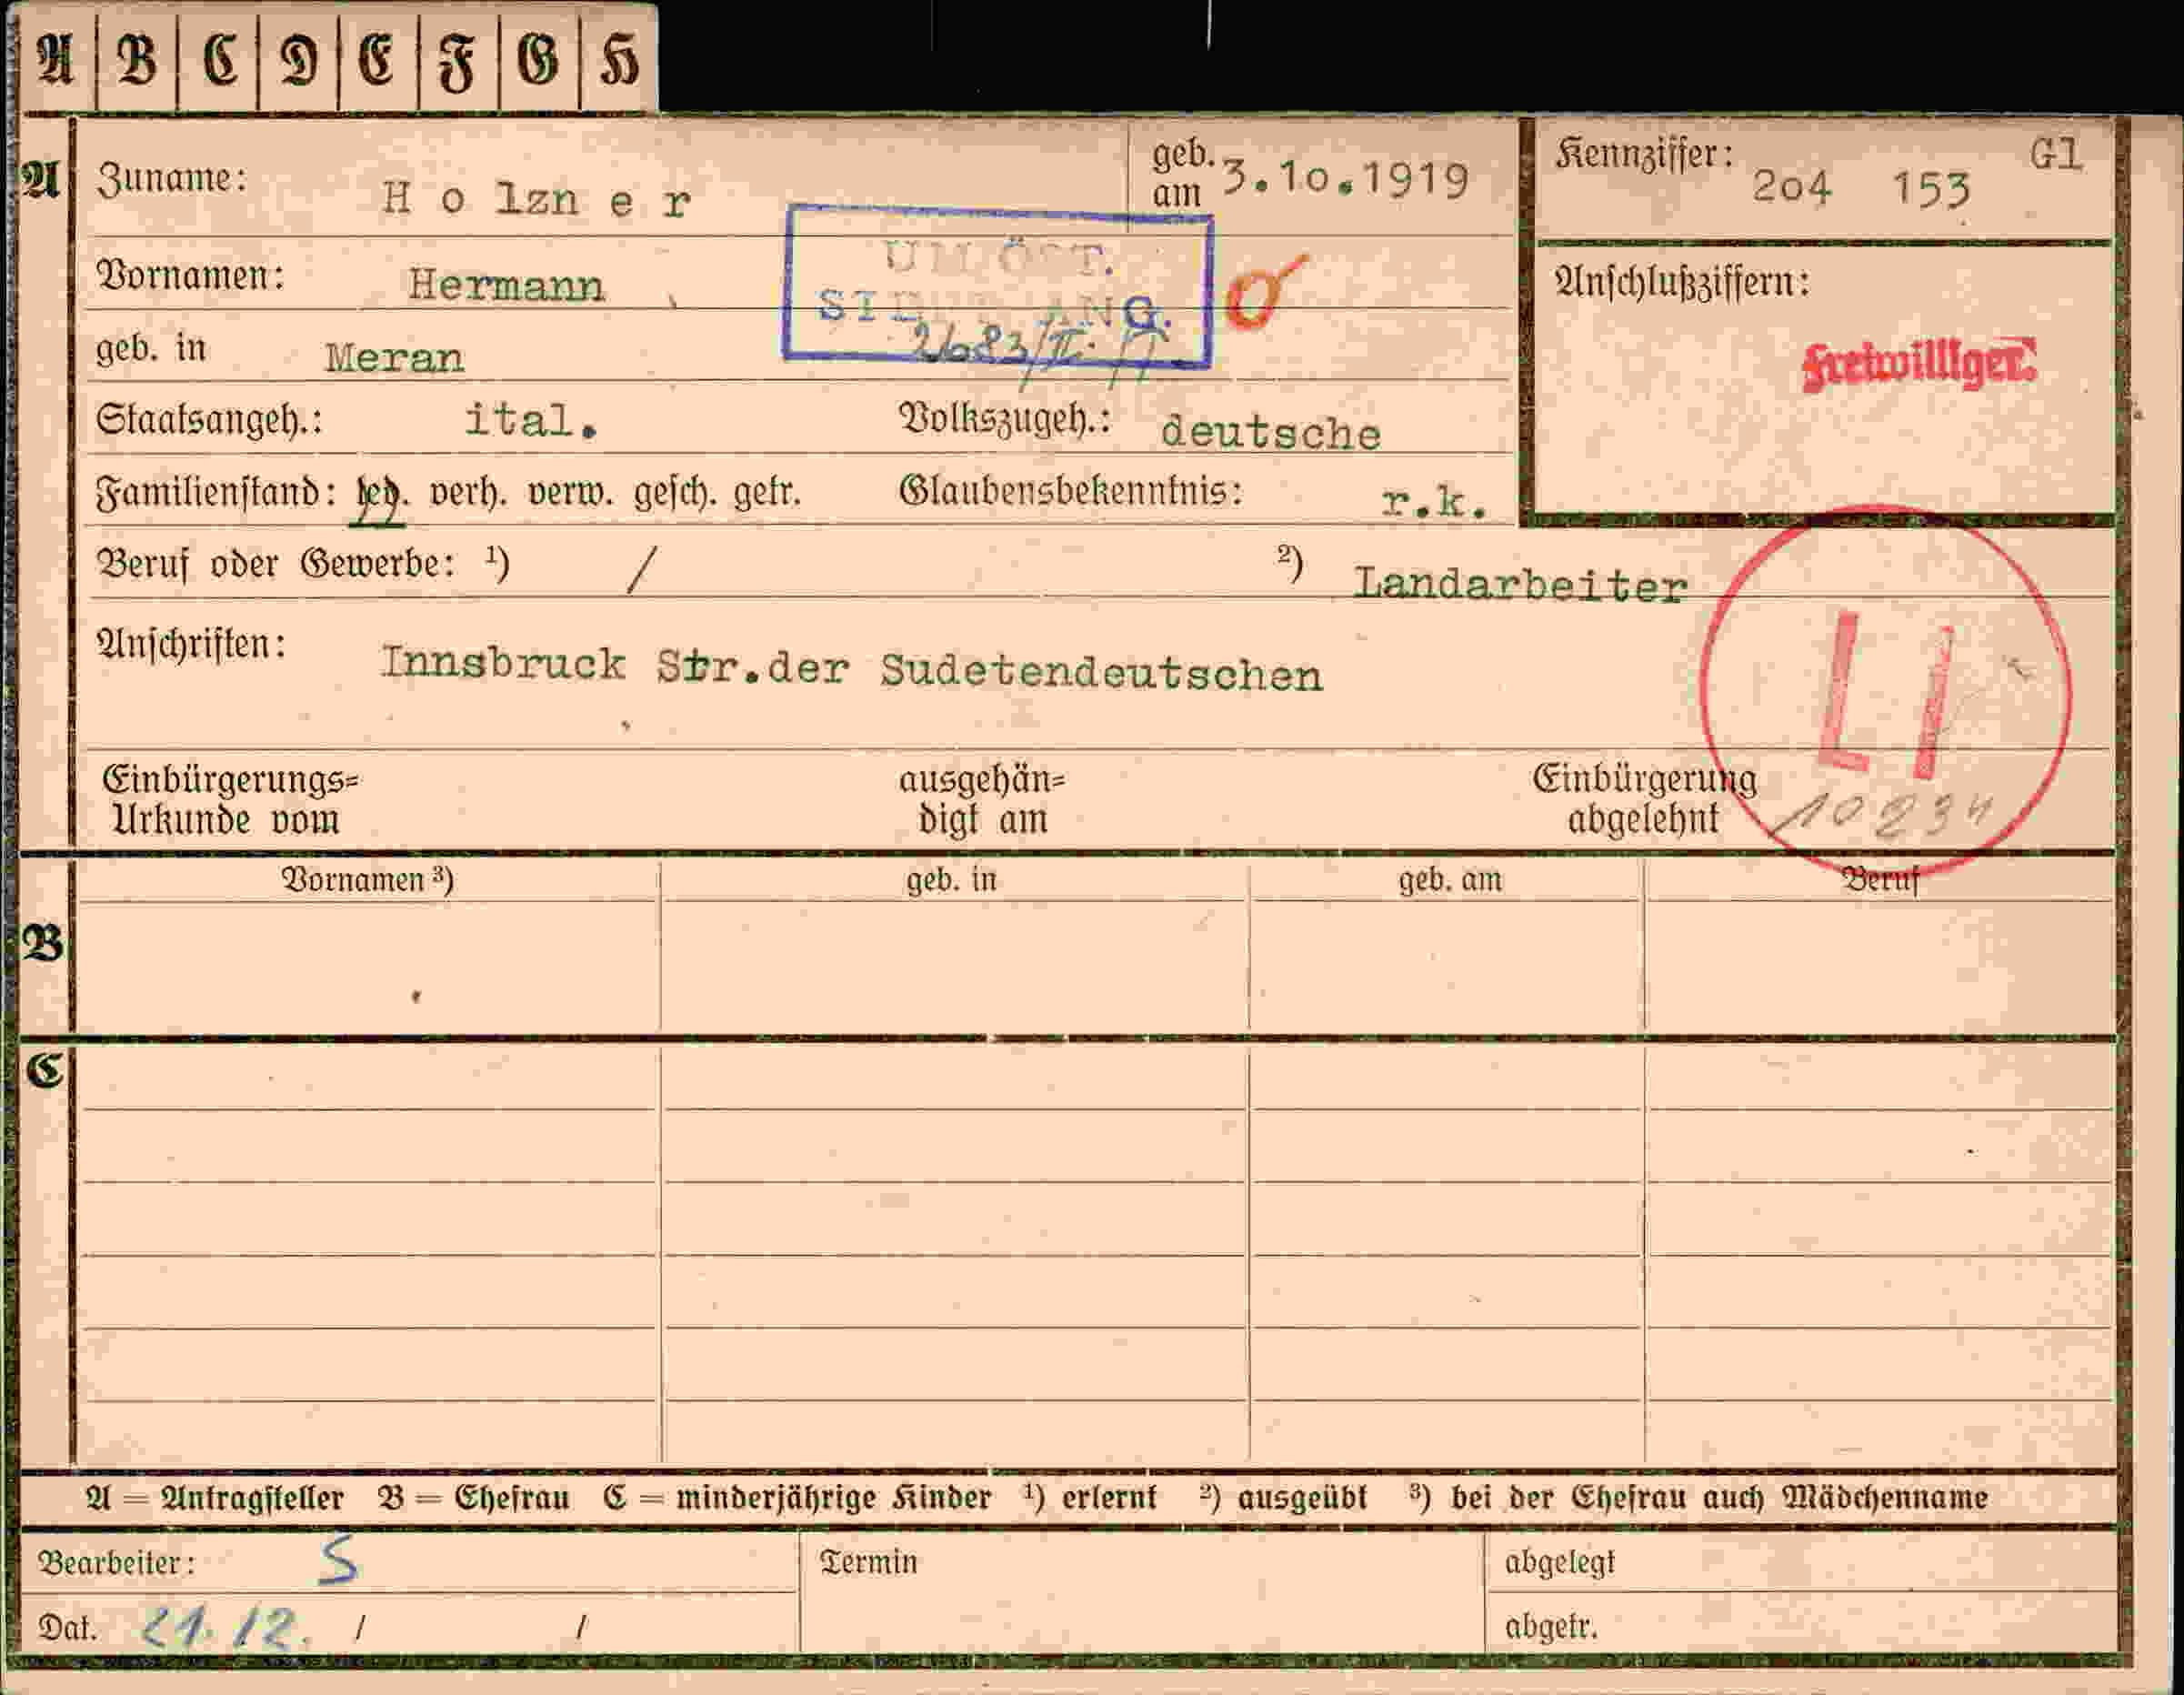 A B C D E F G H
A Zuname: Holzner geb. am 3.10.1919 Kennziffer: 204 153 Gl
Vornamen: Hermann Anschlußziffern:
geb. in Meran 2683/II. Freiwilliger.
Staatsangeh.: ital. Volkszugeh.: deutsche
Familienstand: led. verh. verw. gesch. getr. Glaubensbekenntnis: r.k.
Beruf oder Gewerbe: 1) / 2) Landarbeiter
Anschriften: Innsbruck Str.der Sudetendeutschen
LI
Einbürgerungs= ausgehän= Einbürgerung
Urkunde vom digt am abgelehnt 10234
Vornamen 3) geb. in geb. am Beruf
B
C
A = Antragsteller B = Ehefrau C = minderjährige Kinder 1) erlernt 2) ausgeübt 3) bei der Ehefrau auch Mädchenname
Bearbeiter: S Termin abgelegt
Dat. 21.12. / / abgetr.